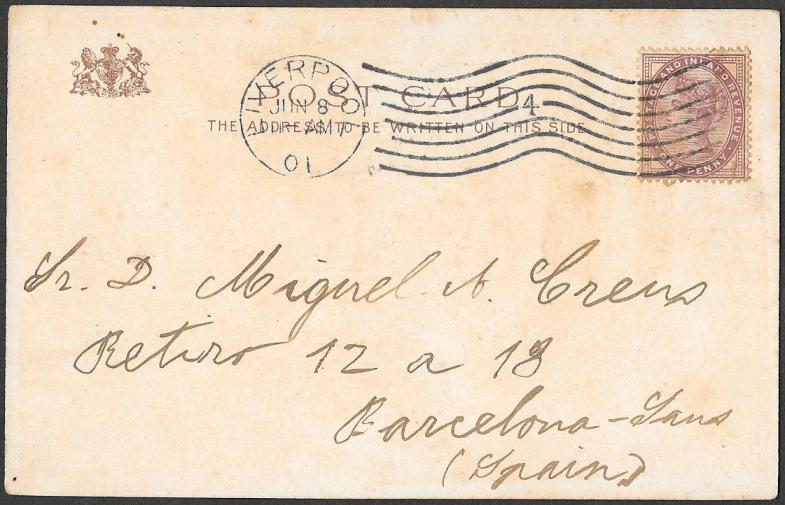 LIVERPOOL
JUN 8
11 - AM
01
4
POST CARD
THE ADDRESS TO BE WRITTEN ON THIS SIDE
POSTAGE AND INLAND REVENUE
ONE PENNY
Sr. D. Miguel A. Creus
Retiro 12 a 18
Barcelona - Sans
(Spain)